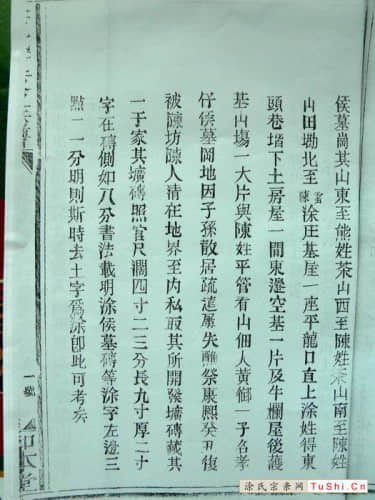 侯墓崗其山東至熊姓茶山西至陳姓茶山南至陳姓
山田塝北至官宦涂庄基屋一座平龍口直上涂姓得東
頭巷堦下土房屋一間東邊空基一片及牛欄屋後護
基山場一大片與陳姓平管看山佃人黃鄉一子名孝
仔侯墓圖地因子孫散居疏遠屢失醮祭康熙癸丑復
被陳坊陳人清在地界至內私取其所開發壙磚載其
一于家其壙磚照官尺濶四寸二三分長九寸厚二寸
字在磚側如八分書法載明涂侯墓磚等涂字左邊三
點二一分明則斯時去土字爲涂卽此可考矣
一號
涂氏宗亲网
TuShi.Cn